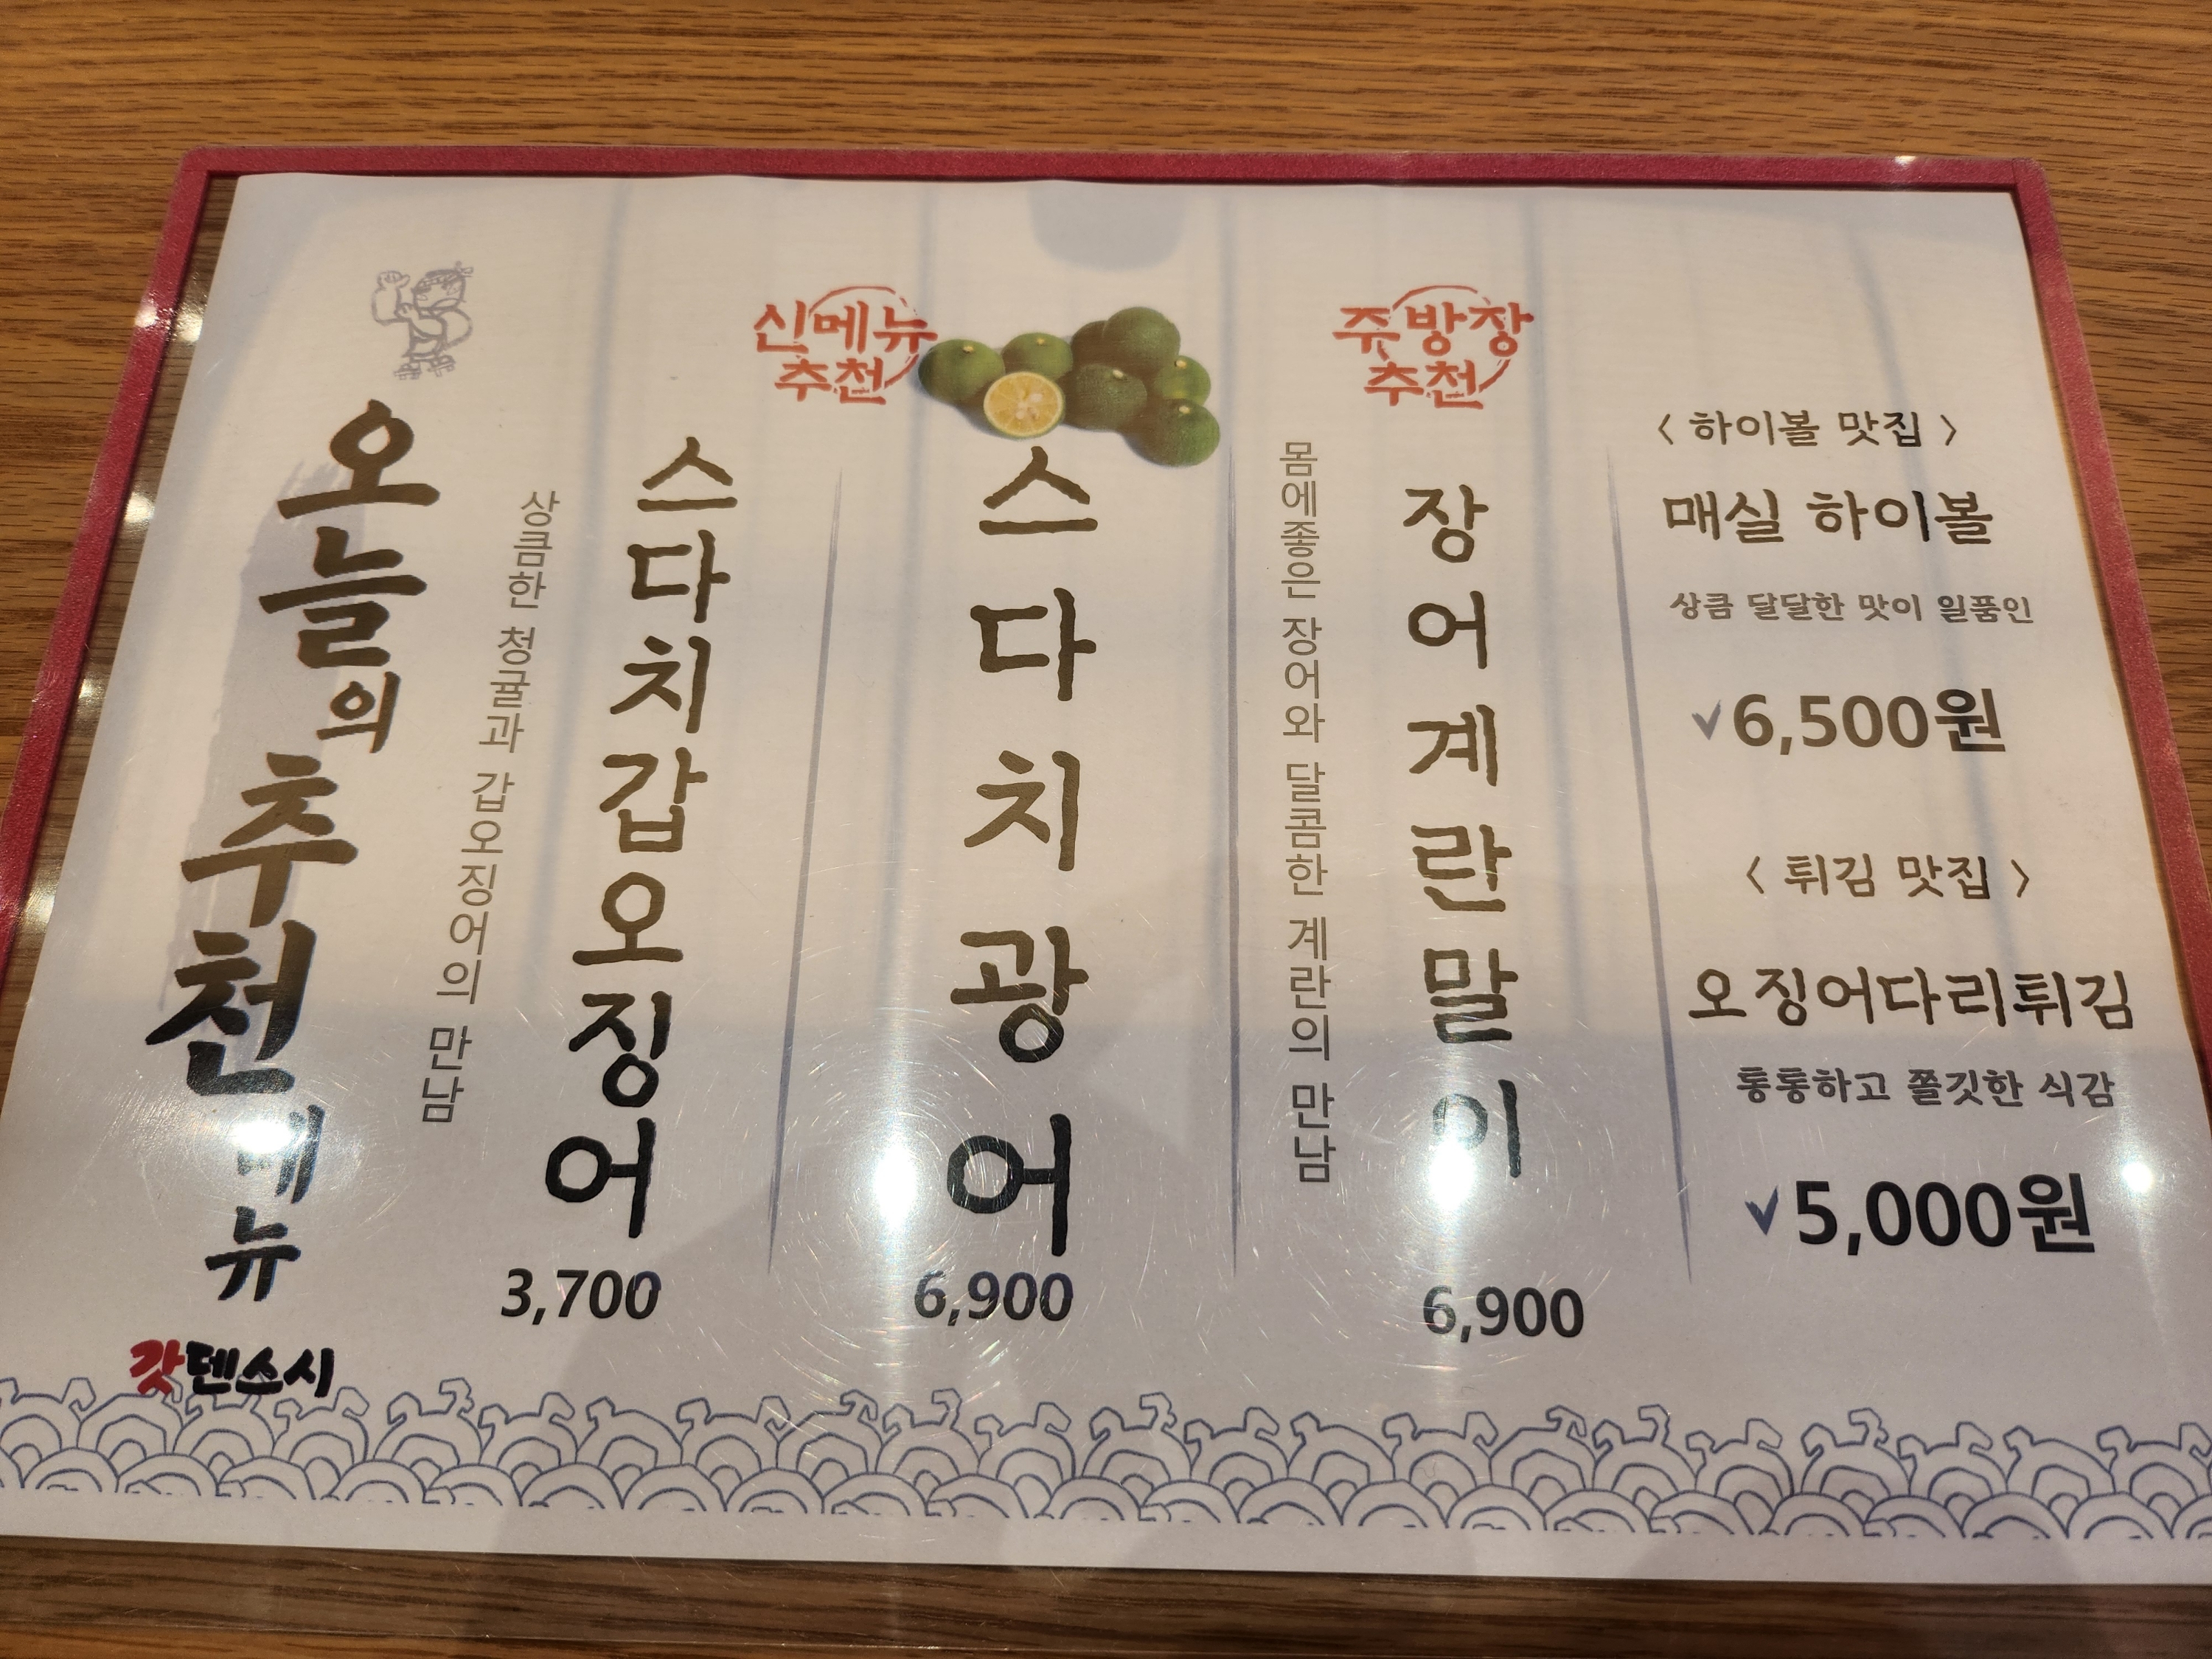 오늘의 추천메뉴
갓덴스시
상큼한 청귤과 갑오징어의 만남
스다치갑오징어
3,700
신메뉴
추천
스다치광어
6,900
몸에좋은 장어와 달콤한 계란의 만남
주방장
추천
장어계란말이
6,900
〈 하이볼 맛집 〉
매실 하이볼
상큼 달달한 맛이 일품인
✓6,500원
〈 튀김 맛집 〉
오징어다리튀김
통통하고 쫄깃한 식감
✓5,000원